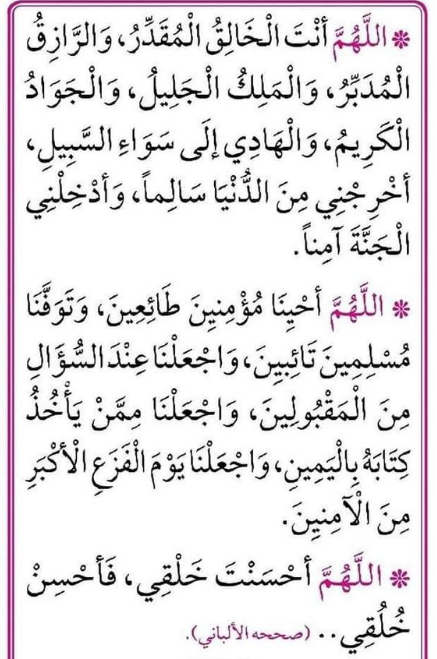 * اللَّهُمَّ أَنْتَ الْخَالِقُ الْمُقَدِّرُ، وَالرَّازِقُ
الْمُدَبِّرُ، وَالْمَلِكُ الْجَلِيلُ، وَالْجَوَادُ
الْكَرِيمُ، وَالْهَادِي إِلَى سَوَاءِ السَّبِيلِ،
أَخْرِجْنِي مِنَ الدُّنْيَا سَالِماً، وَأَدْخِلْنِي
الْجَنَّةَ آمِناً.
* اللَّهُمَّ أَحْيِنَا مُؤْمِنِينَ طَائِعِينَ، وَتَوَفَّنَا
مُسْلِمِينَ تَائِبِينَ، وَاجْعَلْنَا عِنْدَ السُّؤَالِ
مِنَ الْمَقْبُولِينَ، وَاجْعَلْنَا مِمَّنْ يَأْخُذُ
كِتَابَهُ بِالْيَمِينِ، وَاجْعَلْنَا يَوْمَ الْفَزَعِ الْأَكْبَرِ
مِنَ الْآمِنِينَ.
* اللَّهُمَّ أَحْسَنْتَ خَلْقِي، فَأَحْسِنْ
خُلُقِي.. (صححه الألباني).